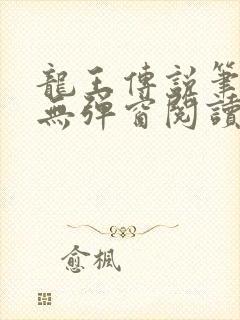 龍王傳說筆
無彈窗閱讀
愈楓